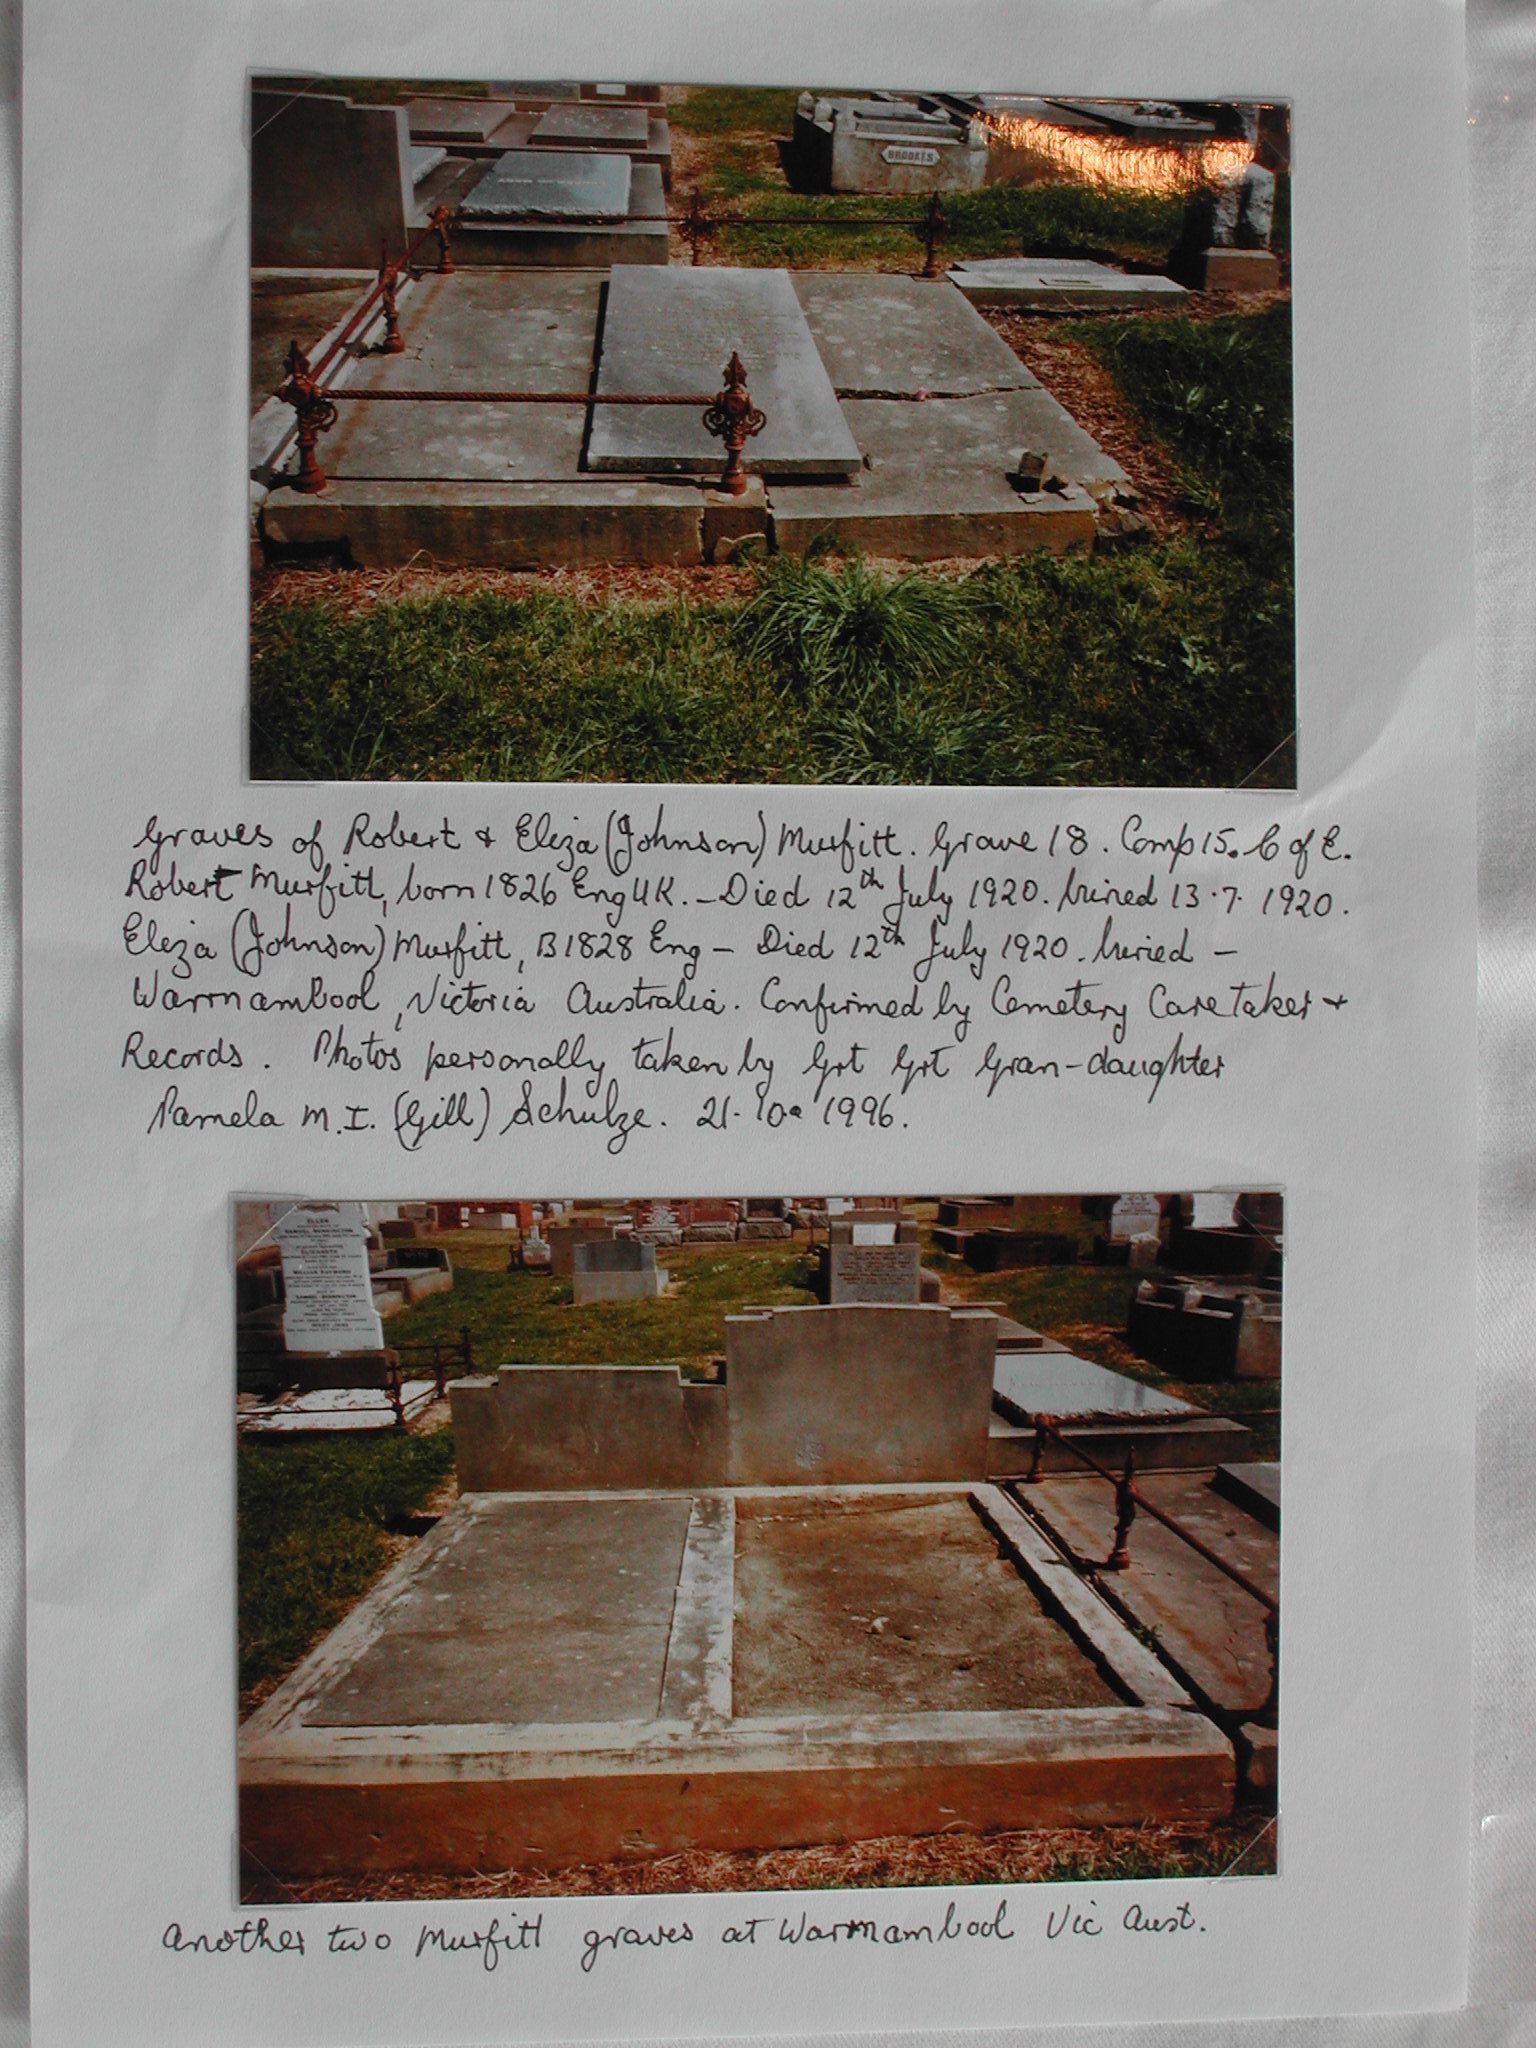 BROOKES
Graves of Robert + Eliza (Johnson) Murfitt. Grave 18. Comp 15. C of E.
Robert Murfitt, born 1826 Eng UK. - Died 12th July 1920. buried 13.7.1920.
Eliza (Johnson) Murfitt, B1828 Eng - Died 12th July 1920. buried -
Warrnambool, Victoria Australia. Confirmed by Cemetery Care Taker +
Records. Photos personally taken by Grt Grt Gran-daughter
Pamela M.I. (Gill) Schulze. 21.10.1996.
ELLEN
SAMUEL BENNINGTON
ELIZABETH
WILLIAM HAYWARD
SAMUEL BENNINGTON
MARY JANE
Another two Murfitt graves at Warrnambool Vic Aust.